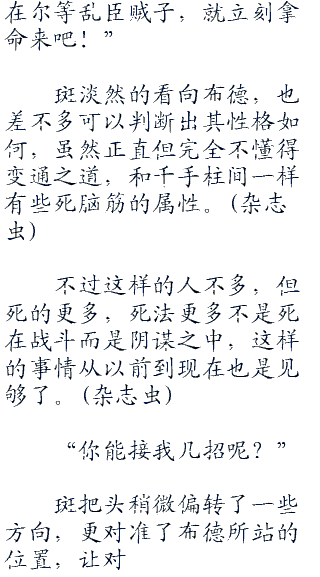 在尔等乱臣贼子，就立刻拿
命来吧！”
斑淡然的看向布德，也
差不多可以判断出其性格如
何，虽然正直但完全不懂得
变通之道，和千手柱间一样
有些死脑筋的属性。(杂志
虫)
不过这样的人不多，但
死的更多，死法更多不是死
在战斗而是阴谋之中，这样
的事情从以前到现在也是见
够了。(杂志虫)
“你能接我几招呢？”
斑把头稍微偏转了一些
方向，更对准了布德所站的
位置，让对